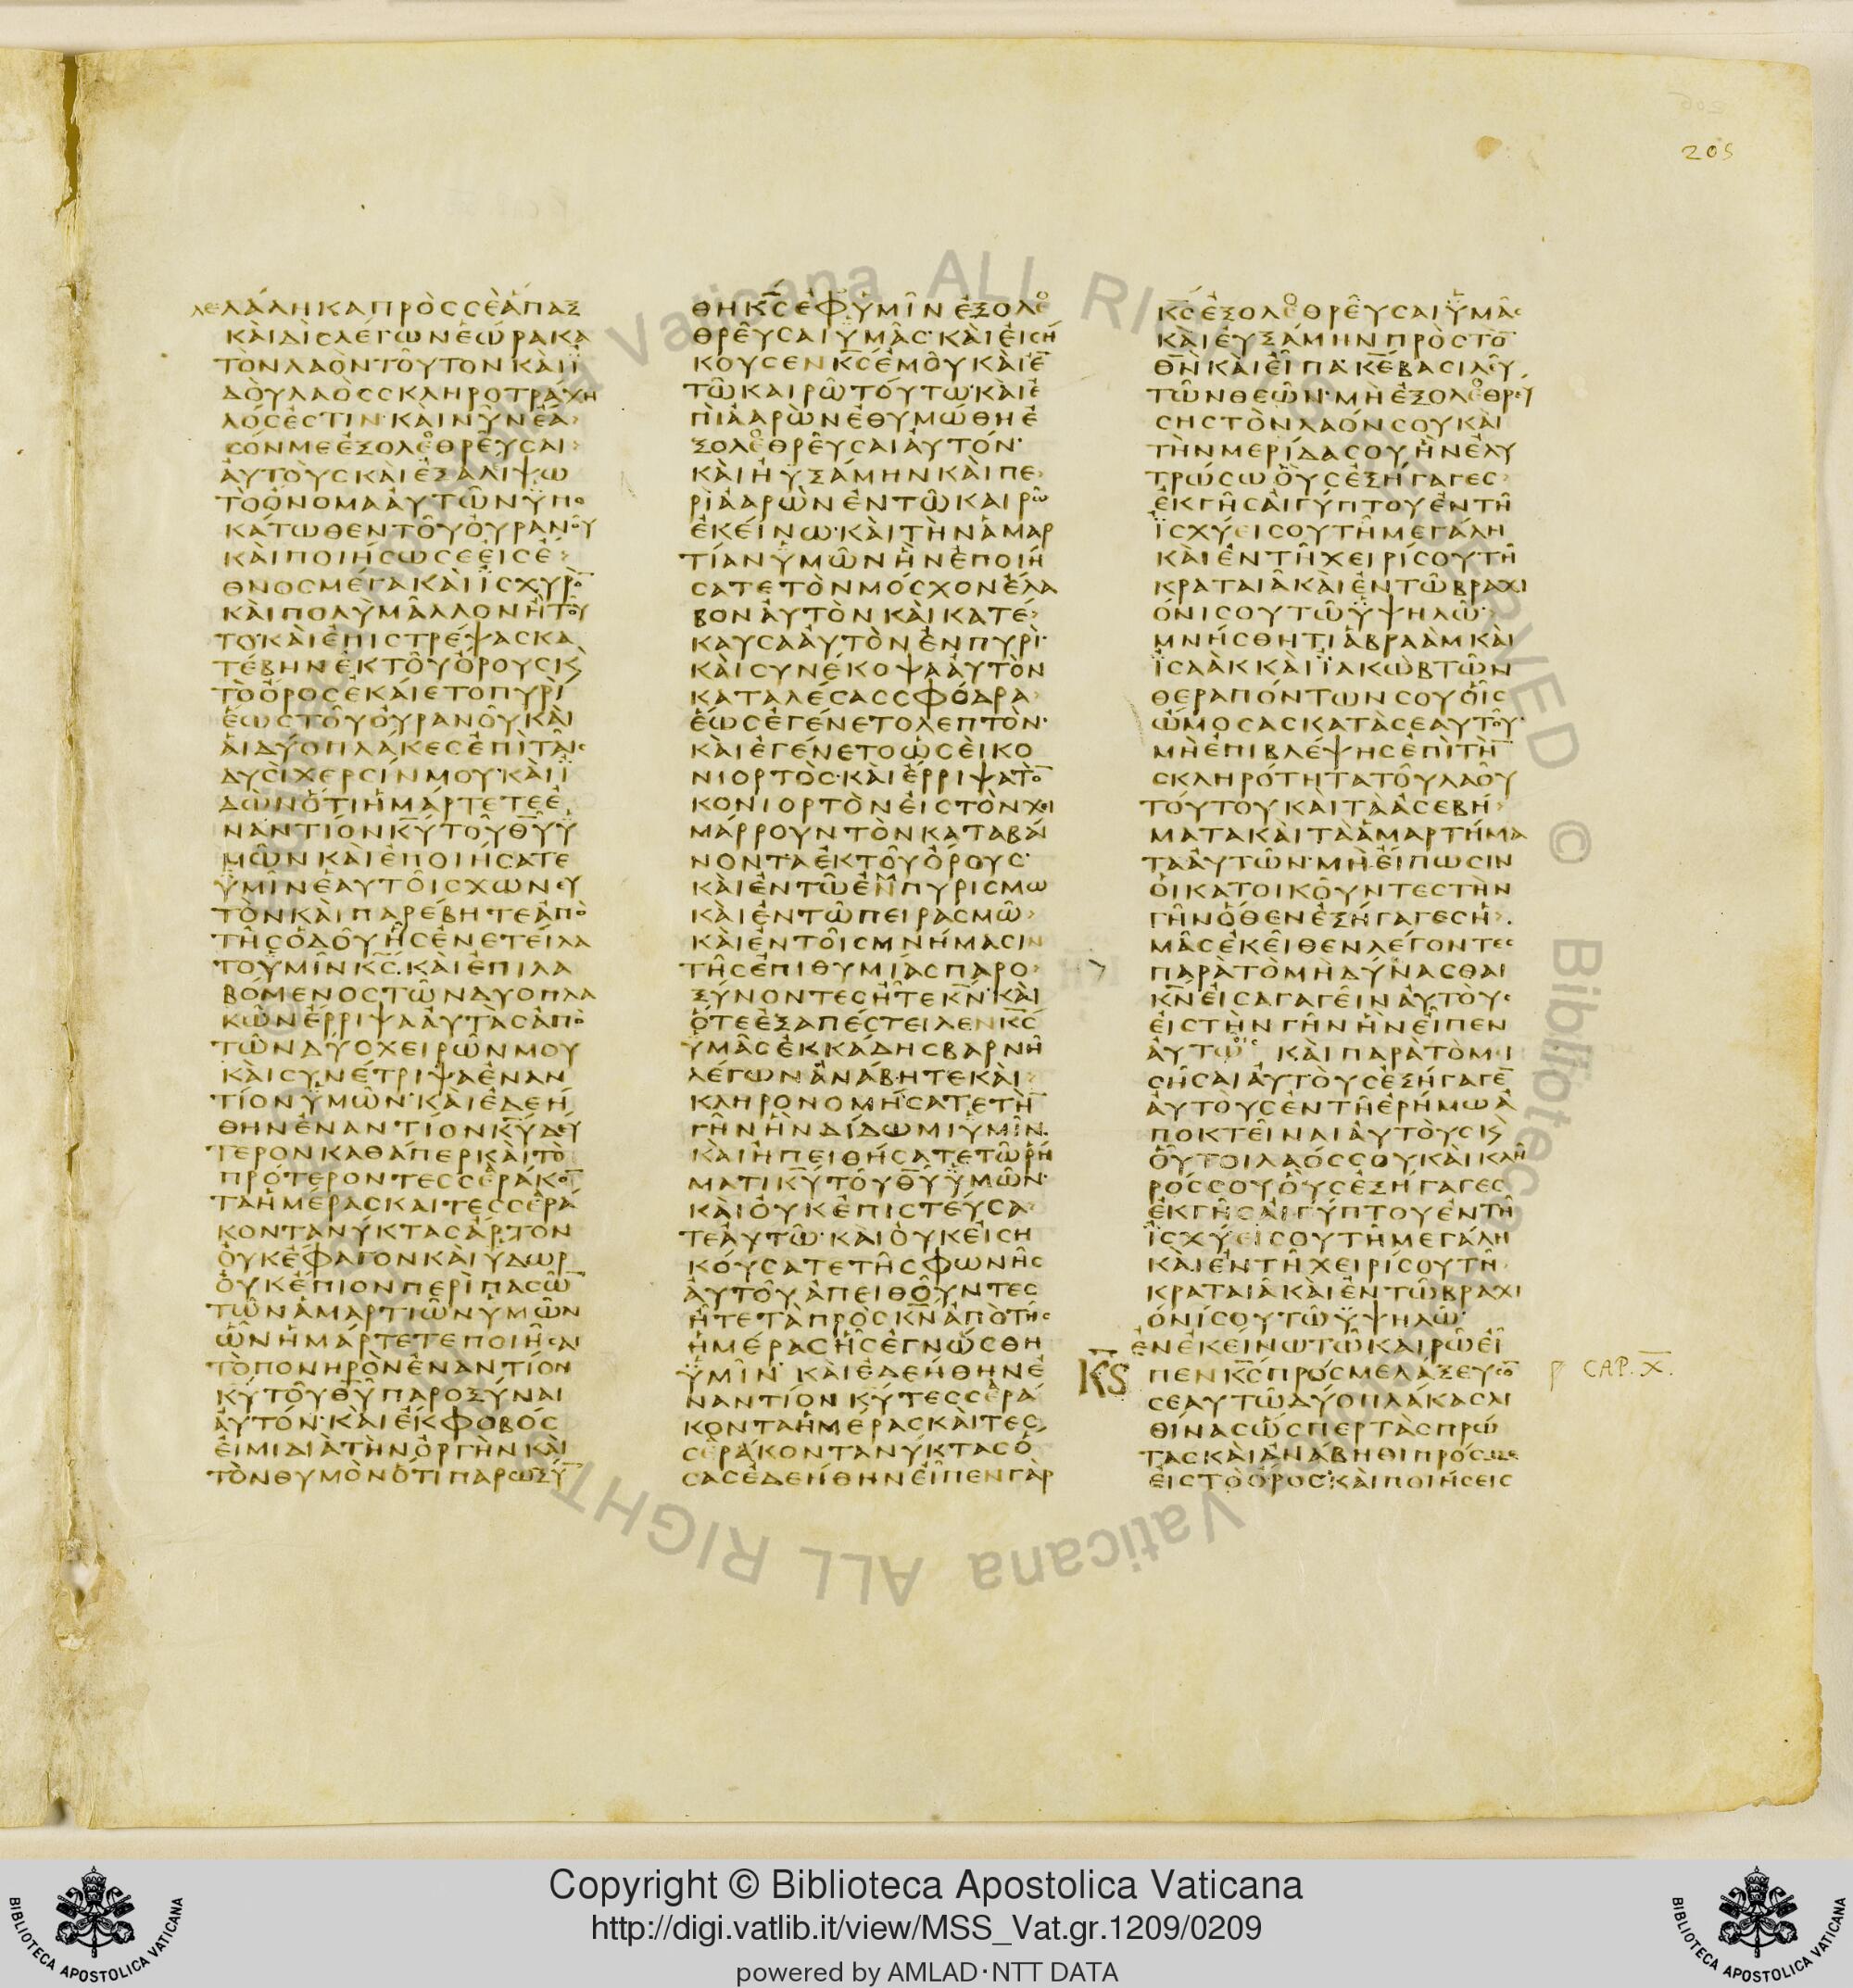 205
λελάληκα πρὸς σὲ ἅπαξ
καὶ δὶς λέγων ἑώρακα
τὸν λαὸν τοῦτον καὶ ἰ
δοὺ λαὸς σκληροτράχη
λός ἐστιν· καὶ νῦν ἔα
σόν με ἐξολεθρεῦσαι
αὐτοὺς καὶ ἐξαλίψω
τὸ ὄνομα αὐτῶν ὑπο
κάτωθεν τοῦ οὐρανοῦ
καὶ ποιήσω σε εἰς ἔ
θνος μέγα καὶ ἰσχυρὸ̅
καὶ πολὺ μᾶλλον ἢ τοῦ
το· καὶ ἐπιστρέψας κα
τέβην ἐκ τοῦ ὄρους κ̀
τὸ ὄρος ἐκάιετο πυρὶ
ἕως τοῦ οὐρανοῦ καὶ
αἱ δύο πλάκες ἐπὶ ταῖς
δυσὶ χερσίν μου· καὶ ἰ
δὼν ὅτι ἡμάρτετε ἐ
ναντίον κ̅υ̅ τοῦ θ̅υ̅ ὑ
μῶν καὶ ἐποιήσατε
ὑμῖν ἑαυτοῖς χωνευ
τὸν καὶ παρέβητε ἀπὸ
τῆς ὁδοῦ ἧς ἐνετείλα
το ὑμῖν κ̅ς̅. καὶ ἐπιλα
βόμενος τῶν δύο πλα
κῶν ἔρριψα αὐτὰς ἀπὸ
τῶν δύο χειρῶν μου
καὶ συνέτριψα ἐναν
τίον ὑμῶν· καὶ ἐδεή
θην ἐναντίον κ̅υ̅ δεύ
τερον καθάπερ καὶ τὸ
πρότερον τεσσεράκο̅
τα ἡμέρας καὶ τεσσερά
κοντα νύκτας ἄρτον
οὐκ ἔφαγον καὶ ὕδωρ
οὐκ ἔπιον περὶ πασῶ̅
τῶν ἁμαρτιῶν ὑμῶν
ὧν ἡμάρτετε ποιῆσαι
τὸ πονηρὸν ἐναντίον
κ̅υ̅ τοῦ θ̅υ̅ παροξύναι
αὐτόν· καὶ ἔκφοβός
εἰμι διὰ τὴν ὀργὴν καὶ
τὸν θυμὸν ὅτι παρωξύ̅
θη κ̅ς̅ ἐφ ὑμῖν ἐξολε
θρεῦσαι ὑμᾶς· καὶ εἰσή
κουσεν κ̅ς̅ ἐμοῦ καὶ ἐ̅
τῶ καιρῶ τούτω· καὶ ἐ
πὶ ἀαρὼν ἐθυμώθη ἐ
ξολεθρεῦσαι αὐτόν·
καὶ ηὐξάμην καὶ πε
ρὶ ἀαρὼν ἐν τῶ καιρῶ
ἐκείνω· καὶ τὴν ἁμαρ
τίαν ὑμῶν ἣν ἐποιή
σατε τὸν μόσχον ἔλα
βον αὐτὸν καὶ κατέ
καυσα αὐτὸν ἐν πυρὶ·
καὶ συνέκοψα αὐτὸν
καταλέσας σφόδρα
ἕως ἐγένετο λεπτόν·
καὶ ἐγένετο ὡσεὶ κο
νιορτὸς· καὶ ἔρριψα τὸ̅
κονιορτὸν εἰς τὸν χει
μάρρουν τὸν καταβαί
νοντα ἐκ τοῦ ὄρους·
καὶ ἐν τῶ ἐνπυρισμῶ
καὶ ἐν τῶ πειρασμῶ
καὶ ἐν τοῖς μνήμασιν
τῆς ἐπιθυμίας παρο
ξύνοντες ἦτε κ̅ν̅· καὶ
ὅτε ἐξαπέστειλεν κ̅ς̅
ὑμᾶς ἐκ κάδης βαρνὴ
λέγων ἀνάβητε καὶ
κληρονομήσατε τὴ̅
γῆν ἣν δίδωμι ὑμῖν.
καὶ ἠπειθήσατε τῶ ρή
ματι κ̅υ̅ τοῦ θ̅υ̅ ὑμῶν·
καὶ οὐκ ἐπιστεύσα
τε αὐτῶ· καὶ οὐκ εἰση
κούσατε τῆς φωνῆς
αὐτοῦ ἀπειθοῦντες
ἦτε τὰ πρὸς κ̅ν̅ ἀπὸ τῆς
ἡμέρας ἧς ἐγνώσθη
ὑμῖν· καὶ ἐδεήθην ἐ
ναντίον κ̅υ̅ τεσσερά
κοντα ἡμέρας καὶ τες
σεράκοντα νύκτας ὅ
σας ἐδεήθην εἶπεν γὰρ
κ̅ς̅ ἐξολεθρεῦσαι ὑμᾶς
καὶ εὐξάμην πρὸς τὸ̅
θ̅ν̅ καὶ εἶπα· κ̅ε̅ βασιλεῦ
τῶν θεῶν· μὴ ἐξολεθρεύ
σης τὸν λαόν σου καὶ
τὴν μερίδα σου ἣν ἐλυ
τρώσω οὓς ἐξήγαγες
ἐκ γῆς αἰγύπτου ἐν τῆ
ἰσχύει σου τῆ μεγάλη
καὶ ἐν τῆ χειρί σου τῆ
κραταιᾶ καὶ ἐν τῶ βραχι
όνι σου τῶ ὑψηλῶ·
μνήσθητι ἀβραὰμ καὶ
ἰσαὰκ καὶ ἰακὼβ τῶν
θεραπόντων σου οἷς
ὤμοσας κατὰ σεαυτοῦ·
μὴ ἐπιβλέψης ἐπὶ τὴ̅
σκληρότητα τοῦ λαοῦ
τούτου καὶ τὰ ἀσεβή
ματα καὶ τὰ ἁμαρτήμα
τα αὐτῶν· μὴ εἴπωσιν
οἱ κατοικοῦντες τὴν
γῆν ὅθεν ἐξήγαγες ἡ
μᾶς ἐκεῖθεν λέγοντες
παρὰ τὸ μὴ δύνασθαι
κ̅ν̅ εἰσαγαγεῖν αὐτοὺς
εἰς τὴν γῆν ἣν εἶπεν
αὐτοῖς καὶ παρὰ τὸ μι
σῆσαι αὐτοὺς ἐξήγαγε̅
αὐτοὺς ἐν τῆ ἐρήμω ἀ
ποκτεῖναι αὐτούς κ̀
οὗτοι λαός σου καὶ κλῆ
ρός σου οὓς ἐξήγαγες
ἐκ γῆς αἰγύπτου ἐν τῆ
ἰσχύει σου τῆ μεγάλη
καὶ ἐν τῆ χειρί σου τῆ
κραταιᾶ καὶ ἐν τῶ βραχι
όνι σου τῶ ὑψηλῶ·
ἐν ἐκείνω τῶ καιρῶ εἶ
πεν κ̅ς̅ πρός με λάξευσο̅
σεαυτῶ δύο πλάκας λι
θίνας ὥσπερ τὰς πρώ
τας καὶ ἀνάβηθι πρός με
εἰς τὸ ὄρος· καὶ ποιήσεις
Κς
CAP. X.
Copyright © Biblioteca Apostolica Vaticana
http://digi.vatlib.it/view/MSS_Vat.gr.1209/0209
powered by AMLAD·NTT DATA
BIBLIOTECA APOSTOLICA VATICANA
BIBLIOTECA APOSTOLICA VATICANA